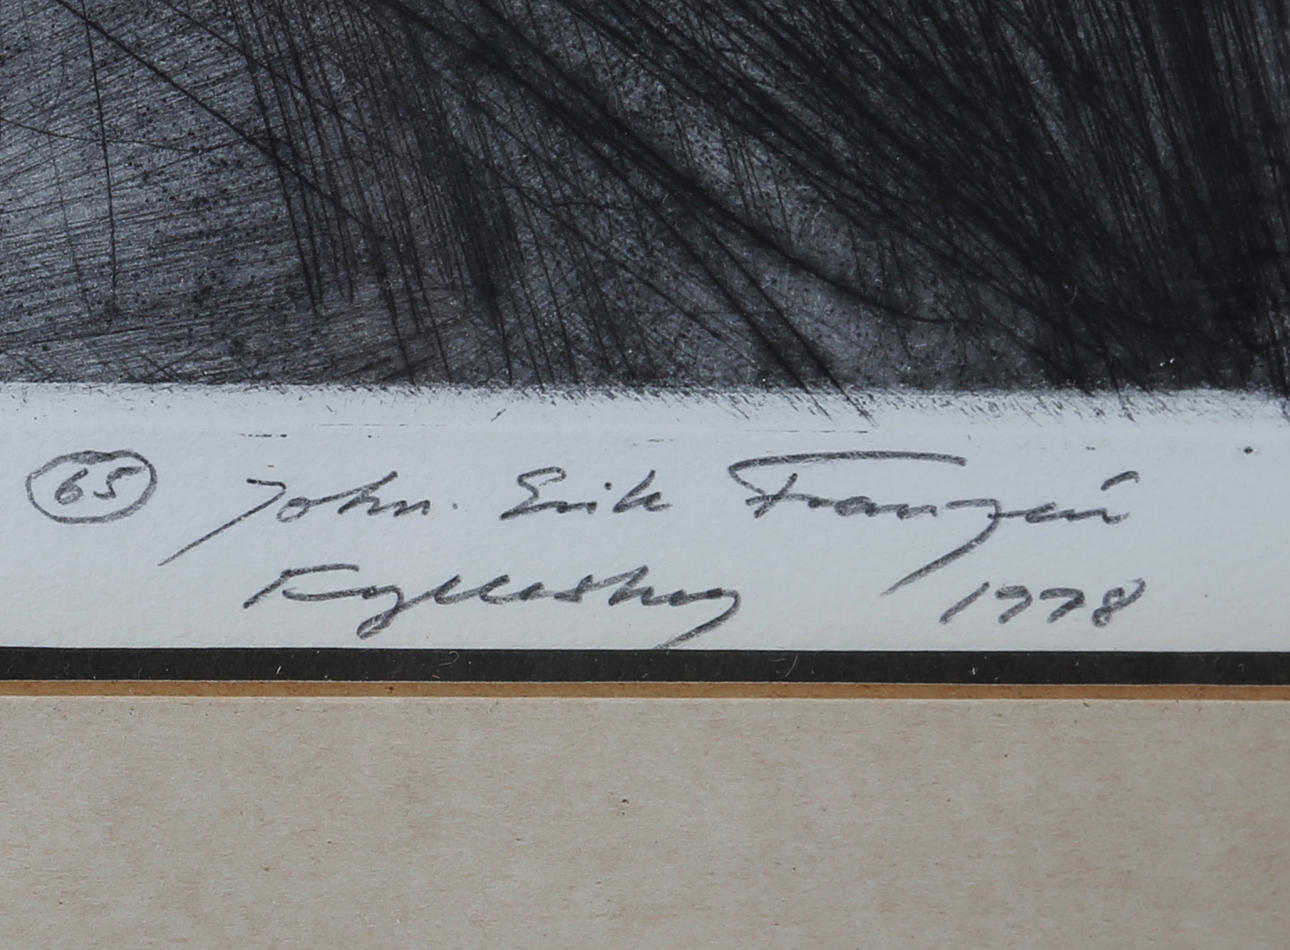 65 John. Erik Franzén
1978